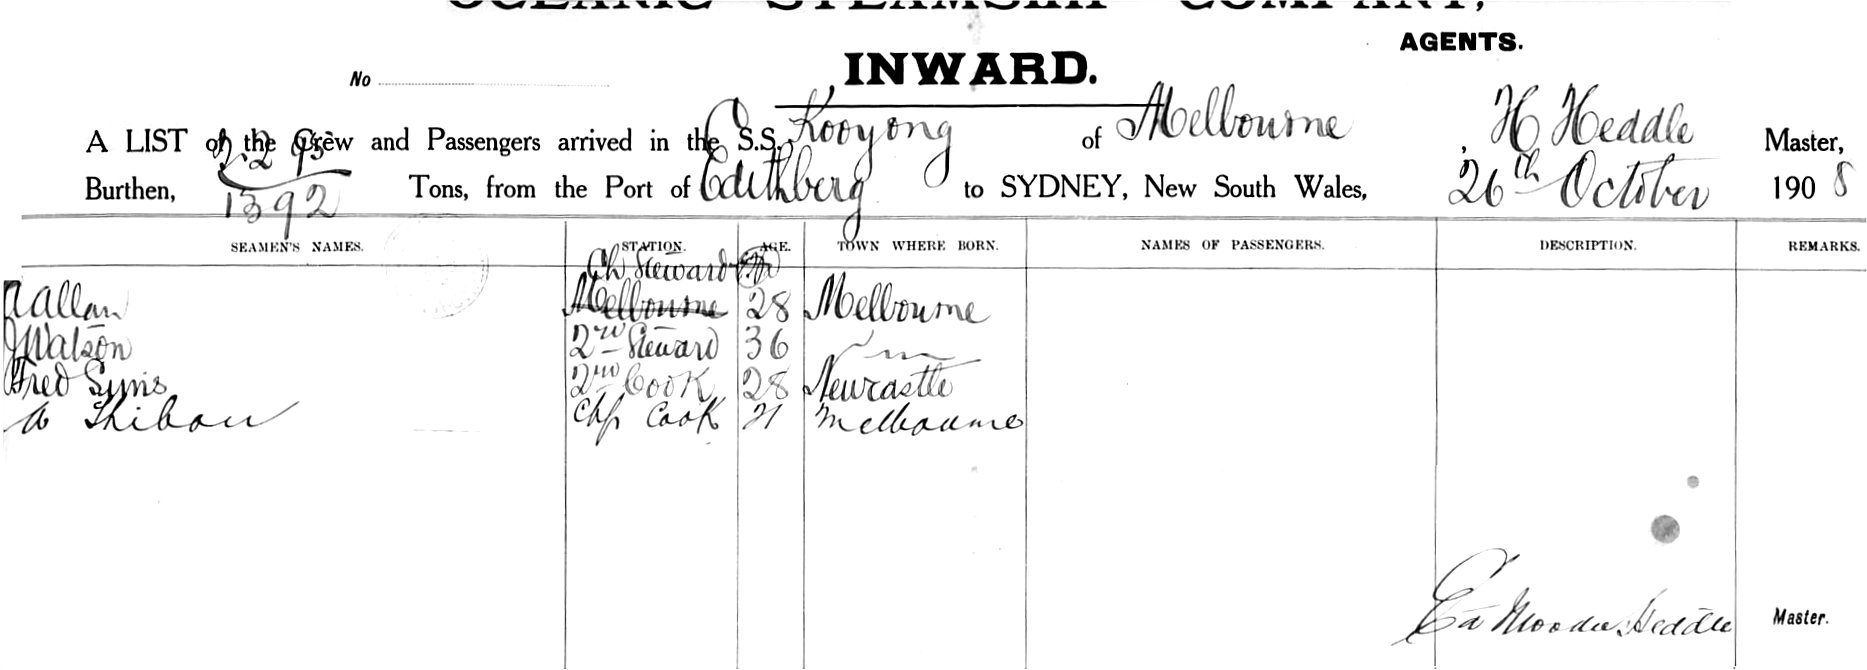 OCEANIC STEAMSHIP COMPANY,
AGENTS.
INWARD.
No
A LIST of the Crew and Passengers arrived in the S.S. Kooyong of Melbourne, H Heddle Master,
Burthen, 2295 / 1392 Tons, from the Port of Edithberg to SYDNEY, New South Wales, 26th October 1908
SEAMEN'S NAMES. STATION. AGE. TOWN WHERE BORN. NAMES OF PASSENGERS. DESCRIPTION. REMARKS.
Ch Steward
A Allan Melbourne 28 Melbourne
J Watson 2nd Steward 36
Fred Syms 2nd Cook 28 Newcastle
Cook Melbourne
Heddle Master.